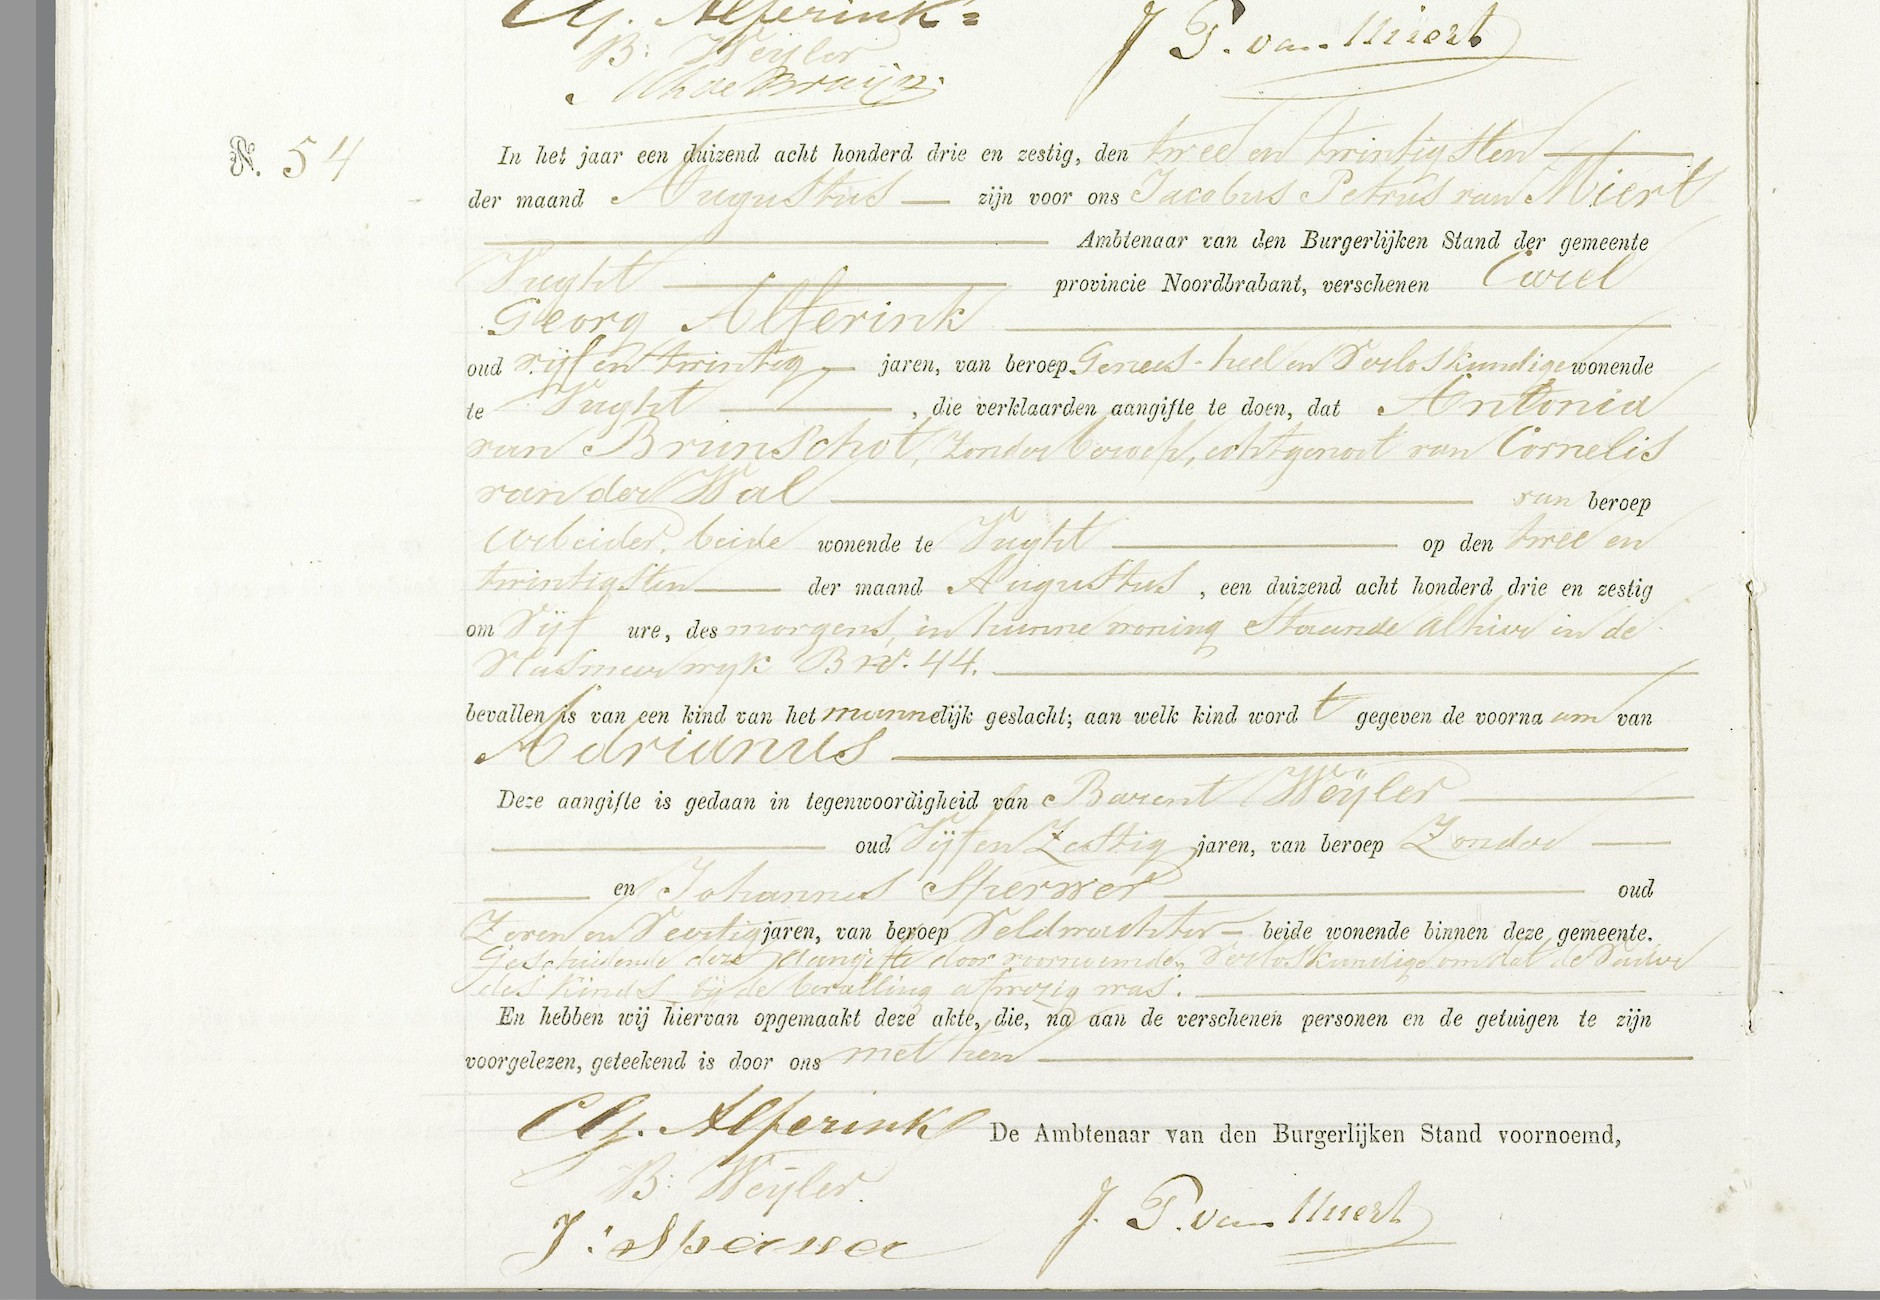 C.G. Alferink
B: Weÿler
J P. van Miert
AhdeBruijn.
N. 54
In het jaar een duizend acht honderd drie en zestig, den twee en twintigsten
der maand Augustus zijn voor ons Jacobus Petrus van Miert
Ambtenaar van den Burgerlijken Stand der gemeente
Vught provincie Noordbrabant, verschenen Carel
Georg Alferink
oud vijf en twintig jaren, van beroep Genees-heel en Verloskundige wonende
te Vught, die verklaarden aangifte te doen, dat Antonia
van Brunschot, zonder beroep, echtgenoot van Cornelis
van der Wal van beroep
arbeider, beide wonende te Vught op den twee en
twintigsten der maand Augustus, een duizend acht honderd drie en zestig
om Vijf ure, des morgens, in hunne woning staande alhier in de
wyk B No. 44.
bevallen is van een kind van het mannelijk geslacht; aan welk kind word t gegeven de voorna am van
Adrianus
Deze aangifte is gedaan in tegenwoordigheid van Barent Weÿler
oud Vijf en Zestig jaren, van beroep Zonder
en Johannes Sperwer oud
Zeven en Veertig jaren, van beroep Veldwachter beide wonende binnen deze gemeente.
Geschiedende deze aangifte door voornoemde Verloskundige omdat de Vader
des kinds bij de bevalling afwezig was.
En hebben wij hiervan opgemaakt deze akte, die, na aan de verschenen personen en de getuigen te zijn
voorgelezen, geteekend is door ons met hen
C.G. Alferink De Ambtenaar van den Burgerlijken Stand voornoemd,
B: Weÿler.
J. P. van Miert
J: Sperwer